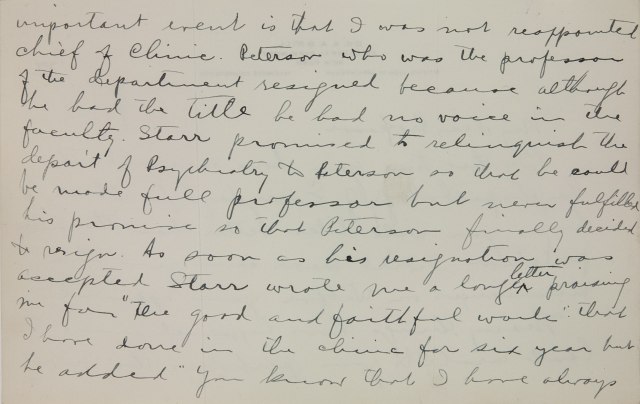 important event is that I was not reappointed
chief of Clinic. Peterson who was the professor
of the department resigned because although
he had the title he had no voice in the
faculty. Starr promised to relinquish the
depart of Psychiatry to Peterson so that he could
be made full professor but never fulfilled
his promise so that Peterson finally decided
to resign. As soon as his resignation was
accepted Starr wrote me a long letter praising
me for "the good and faithful work" that
I have done in the clinic for six year but
he added "You know that I have always